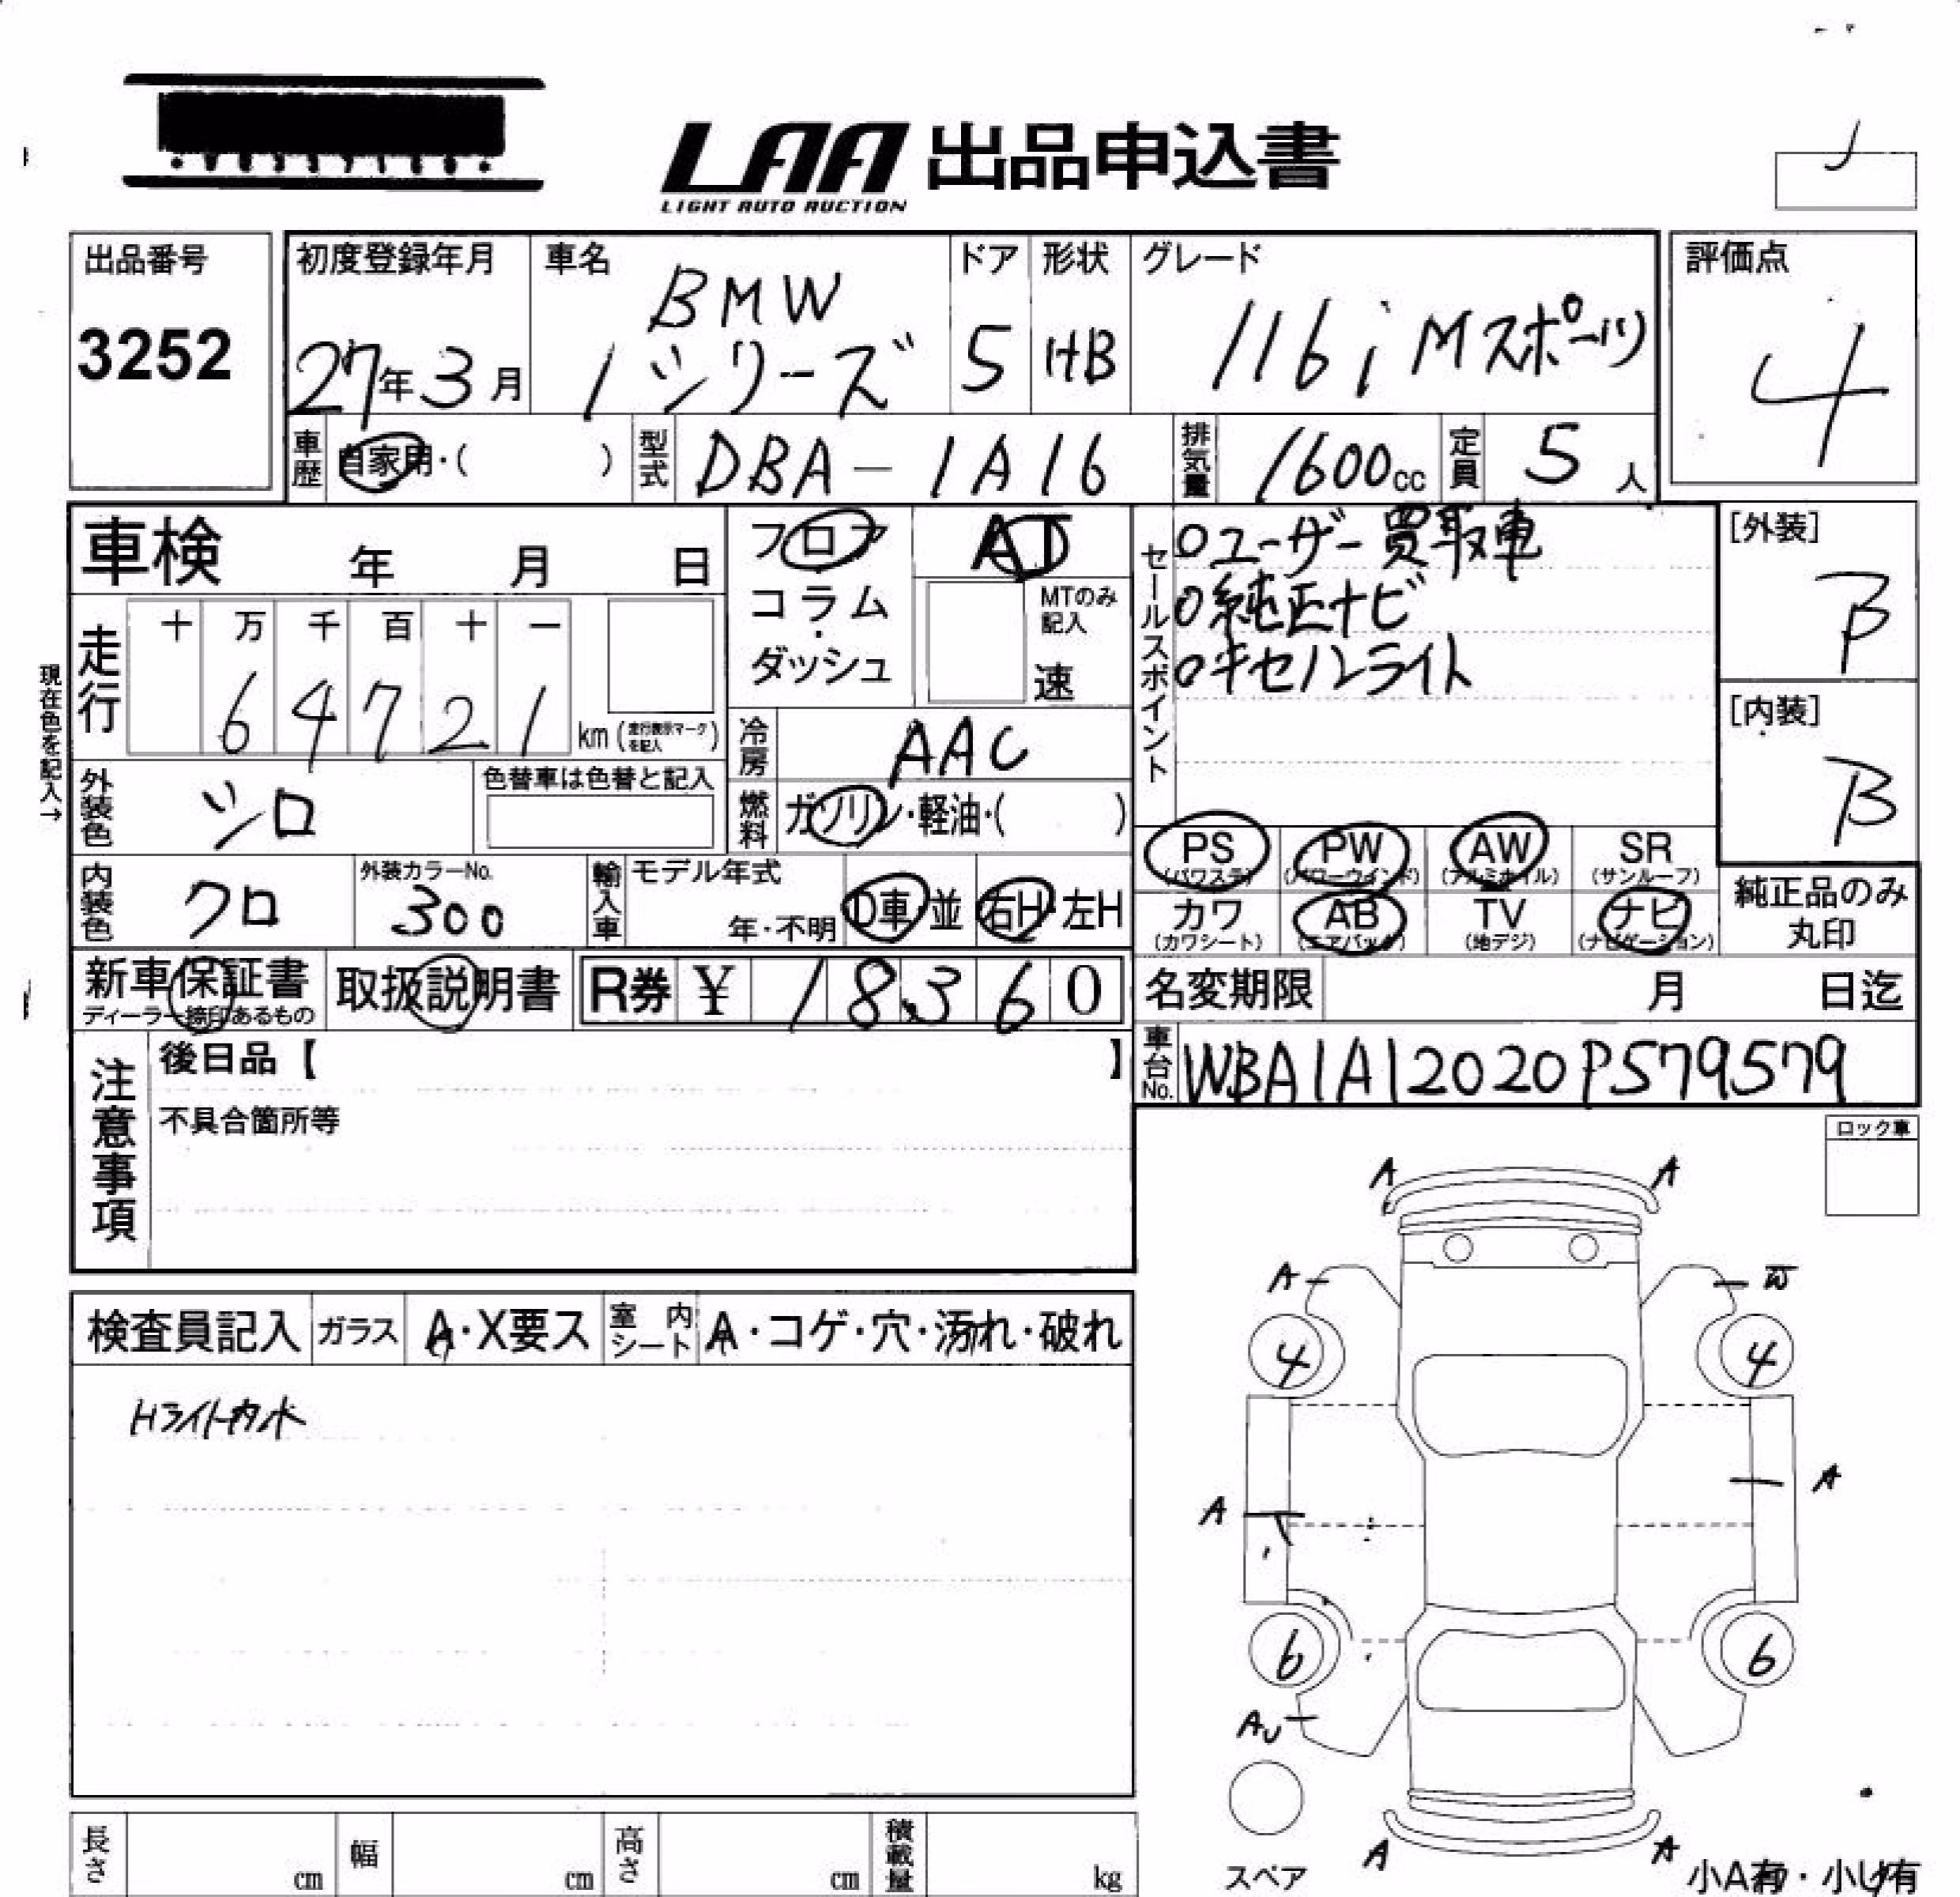 LAA 出品申込書
LIGHT AUTO AUCTION
出品番号
3252
初度登録年月
27年3月
車名
BMW
1シリーズ
ドア
5
形状
HB
グレード
116i Mスポーツ
評価点
4
車歴
自家用・( )
型式
DBA-1A16
排気量
1600cc
定員
5人
車検 年 月 日
フロア
・
コラム
・
ダッシュ
AT
MTのみ
記入
速
セールスポイント
○ユーザー買取車
○純正ナビ
○キセノンライト
[外装]
B
[内装]
B
現在色を記入→
走行
十 万 千 百 十 一
6 4 7 2 1
km (走行表示マークを記入)
冷房
AAC
外装色
シロ
色替車は色替と記入
燃料
ガソリン・軽油・( )
PS PW AW SR
(パワステ) (パワーウインド) (アルミホイル) (サンルーフ)
カワ AB TV ナビ
(カワシート) (エアバック) (地デジ) (ナビゲーション)
純正品のみ
丸印
内装色
クロ
外装カラーNo.
300
輸入車
モデル年式
年・不明
D車・並
右H・左H
新車保証書
ディーラー捺印あるもの
取扱説明書
R券 ¥ 18,360
名変期限 月 日迄
車台No.
WBA1A12020P579579
注意事項
後日品【 】
不具合箇所等
ロック車
検査員記入
ガラス
A・X要ス
室内シート
A・コゲ・穴・汚れ・破れ
A A
A W
4 4
A A
6 6
AU
A A
スペア
小A有・小U有
長さ cm
幅 cm
高さ cm
積載量 kg